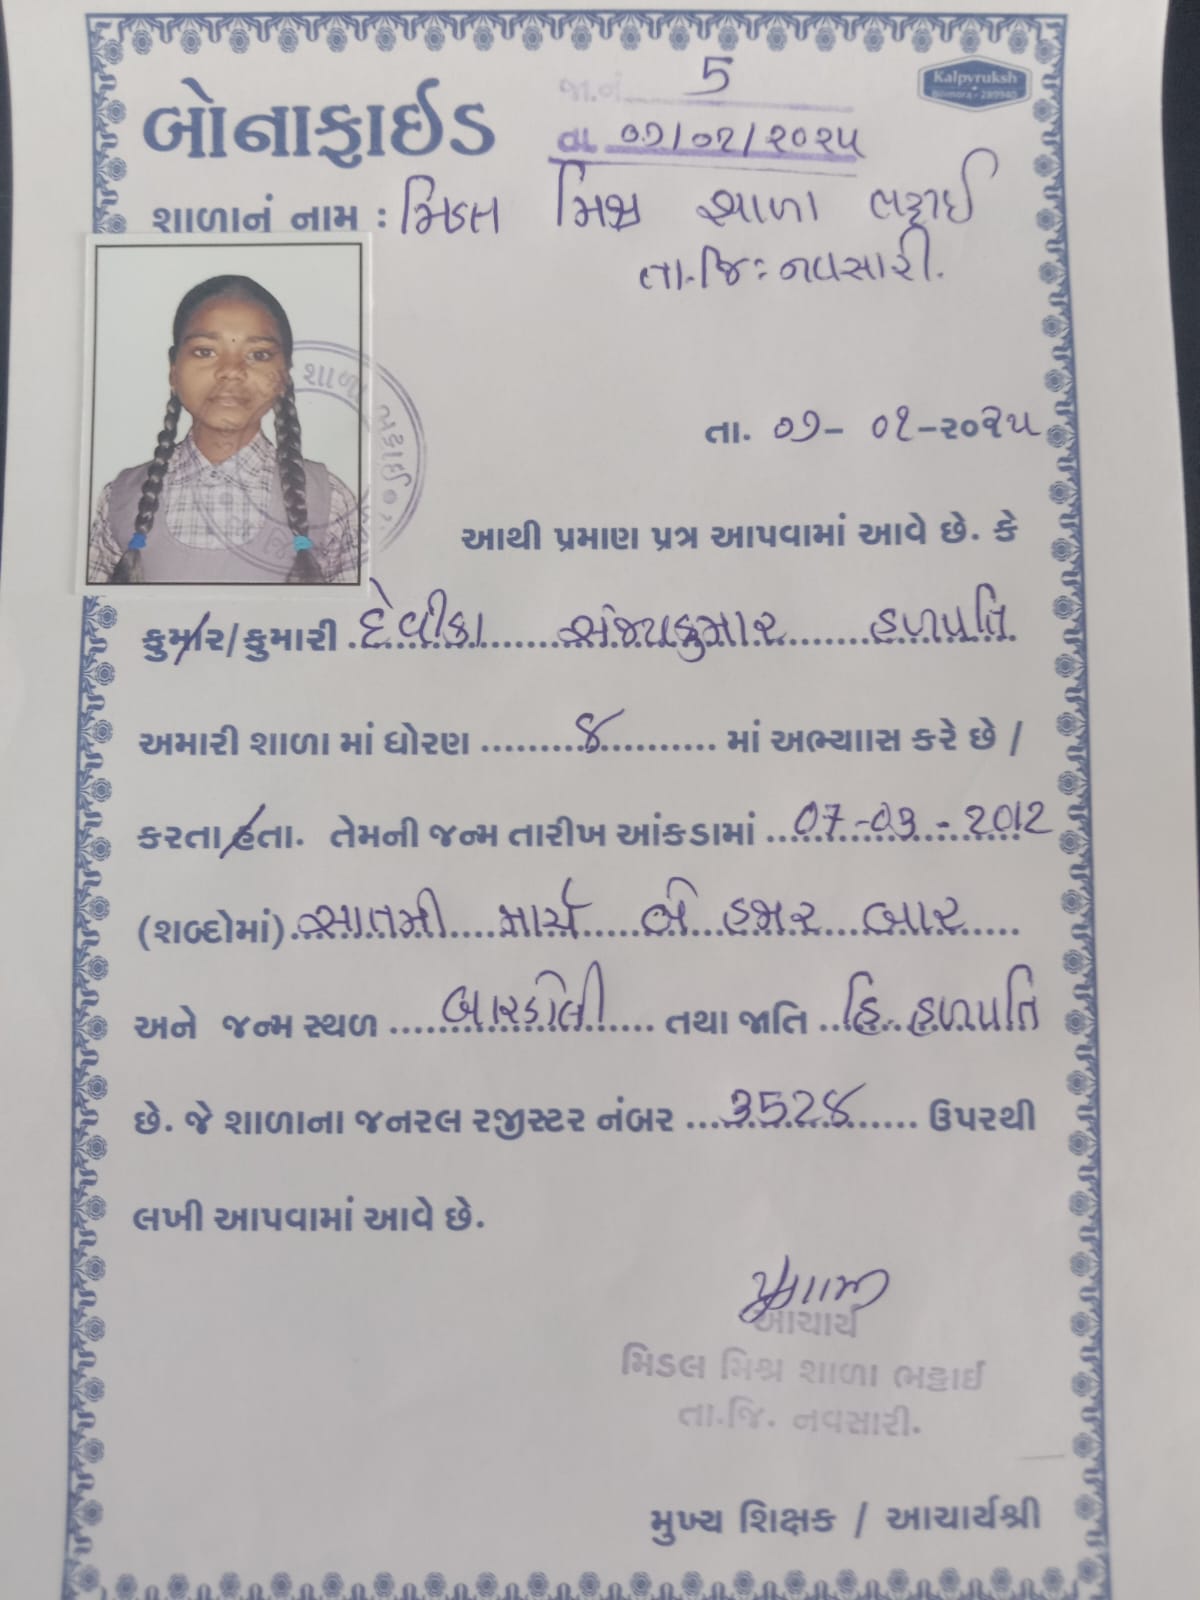 બોનાફાઈડ
જા.નં. 5
તા ૦૭/૦૧/૨૦૨૫
Kalpvruksh
શાળાનું નામ : મિડલ મિશ્ર શાળા ભટ્ટાઈ
તા.જિ: નવસારી.
શાળા ભટ્ટાઈ
તા. ૦૭- ૦૧-૨૦૨૫
આથી પ્રમાણ પત્ર આપવામાં આવે છે. કે
કુમાર/કુમારી દેવીકા સંજયકુમાર હળપતિ
અમારી શાળા માં ધોરણ ૪ માં અભ્યાાસ કરે છે /
કરતા હતા. તેમની જન્મ તારીખ આંકડામાં 07-03-2012
(શબ્દોમાં) સાતમી માર્ચ બે હજાર બાર
અને જન્મ સ્થળ બારડોલી તથા જાતિ હિ. હળપતિ
છે. જે શાળાના જનરલ રજીસ્ટર નંબર 352૪ ઉપરથી
લખી આપવામાં આવે છે.
આચાર્ય
મિડલ મિશ્ર શાળા ભટ્ટાઈ
તા.જિ. નવસારી.
મુખ્ય શિક્ષક / આચાર્યશ્રી